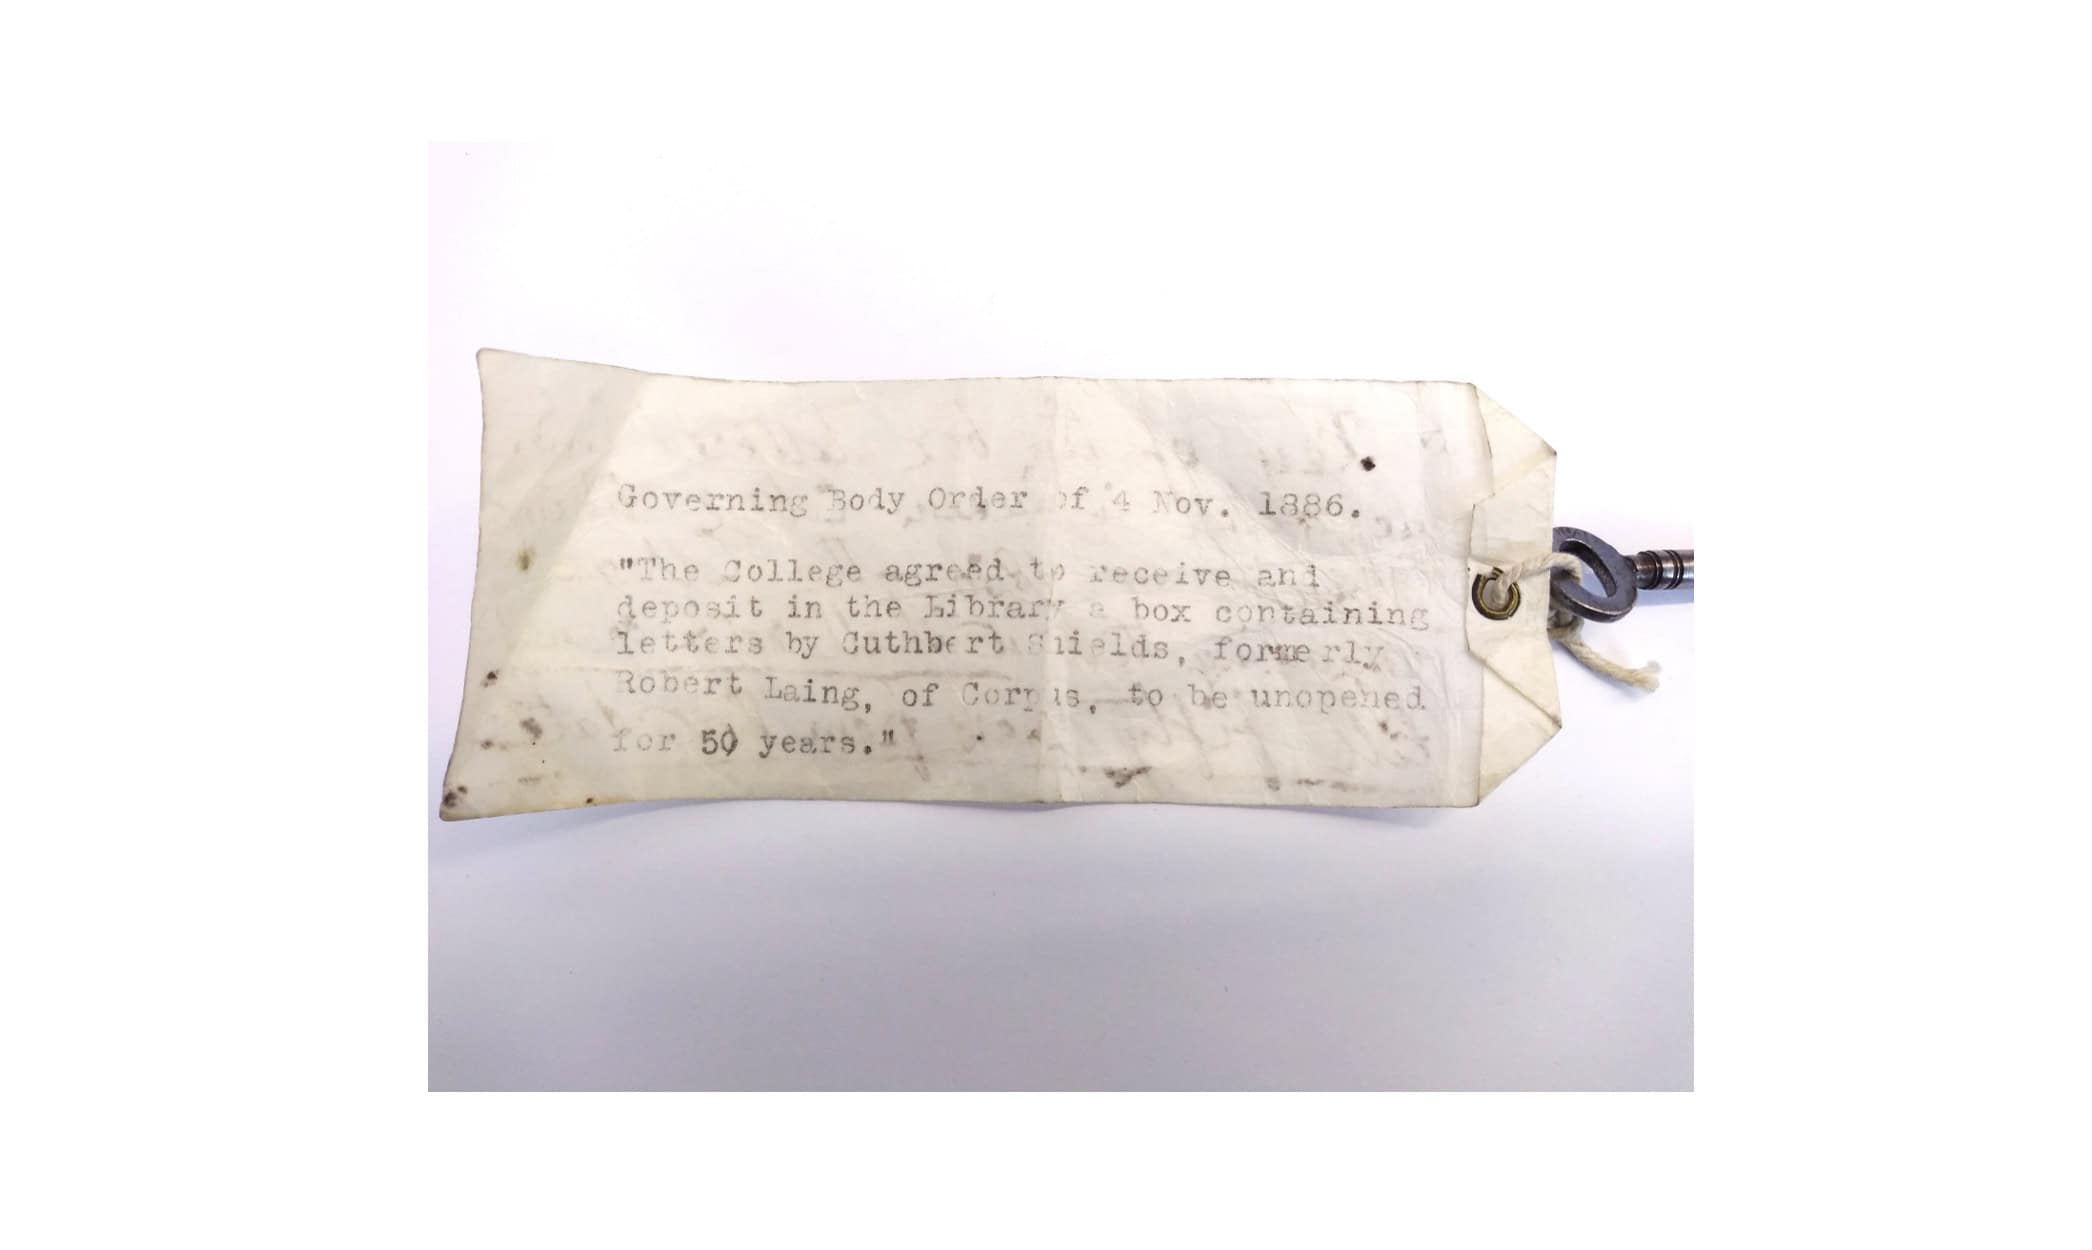 Governing Body Order of 4 Nov. 1886.
"The College agreed to receive and
deposit in the Library a box containing
letters by Cuthbert Shields, formerly
Robert Laing, of Corpus, to be unopened
for 50 years."